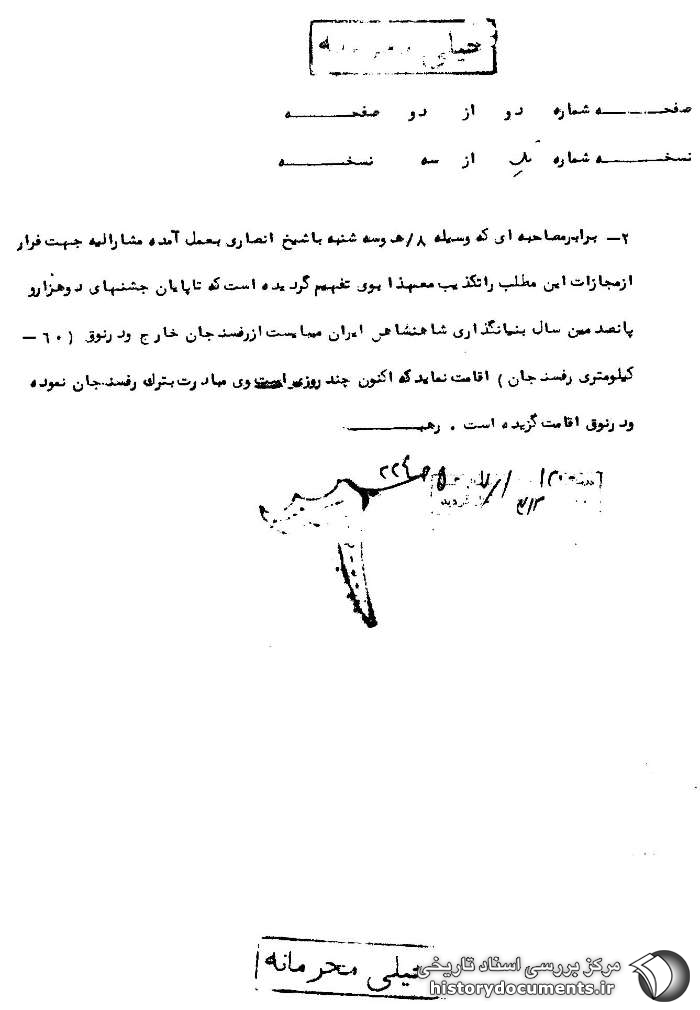 خیلی محرمانه
صفحـــــــه شماره دو از دو صفحـــــــه
نسخـــــــه شماره یک از سه نسخـــــــه
۲— برابر مصاحبه ای که وسیله ۸/هـ و سه شنبه با شیخ انصاری بعمل آمده مشارالیه جهت فرار
از مجازات این مطلب را تکذیب معهذا بوی تفهیم گردیده است که تا پایان جشنهای دو هزار و
پانصدمین سال بنیانگذاری شاهنشاهی ایران میبایست از رفسنجان خارج و در نوق (۶۰ —
کیلومتری رفسنجان) اقامت نماید که اکنون چند روزی است وی مبادرت بترک رفسنجان نموده
و در نوق اقامت گزیده است . رهبـــــــر
۲۲۴
خیلی محرمانه
مرکز بررسی اسناد تاریخی
historydocuments.ir